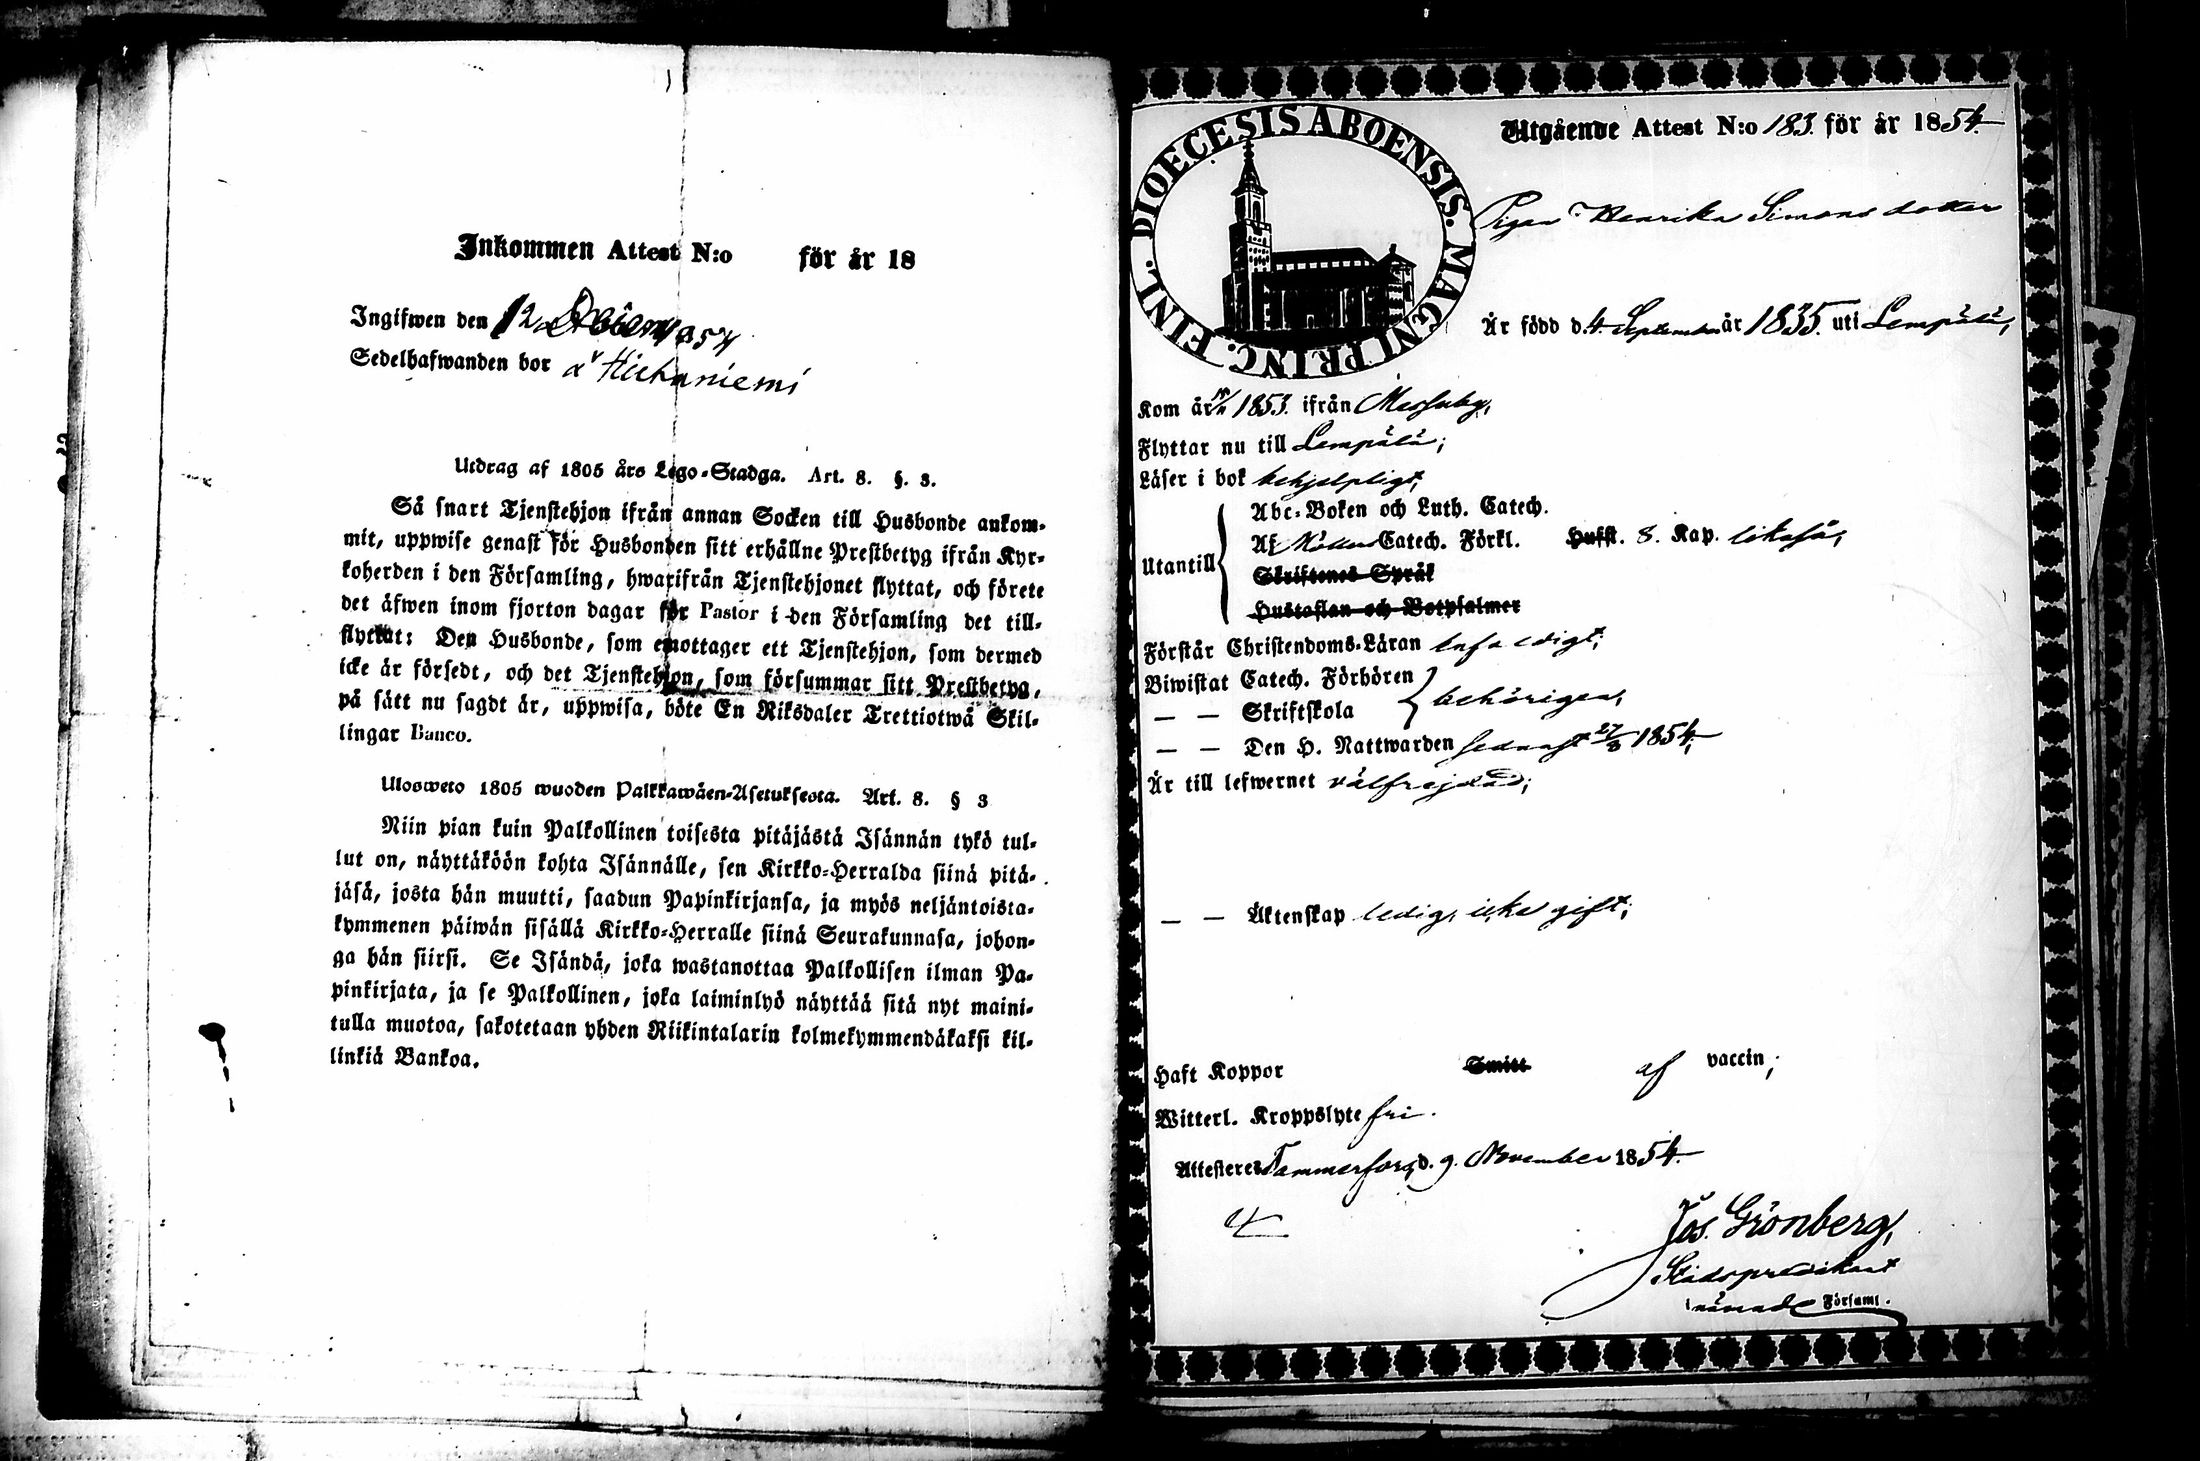 Inkommen Attest N:o för år 18
Ingifwen den 12 1854
Sedelhafwanden bor å Hiehaniemi
Utdrag af 1805 års Lego-Stadga. Art. 8. §. 3.
Så snart Tjenstehjon ifrån annan Socken till Husbonde ankom-
mit, uppwise genast för Husbonden sitt erhållne Prestbetyg ifrån Kyr-
koherden i den Församling, hwarifrån Tjenstehjonet flyttat, och förete
det äfwen inom fjorton dagar för Pastor i den Församling det till-
flyttat: Den Husbonde, som emottager ett Tjenstehjon, som dermed
icke är försedt, och det Tjenstehjon, som försummar sitt Prestbetyg,
på sätt nu sagdt är, uppwisa, böte En Riksdaler Trettiotwå Skil-
lingar Banco.
Ulosweto 1805 wuoden Palkkawäen-Asetuksesta. Art. 8. § 3
Niin pian kuin Palkollinen toisesta pitäjästä Isännän tykö tul-
lut on, näyttäköön kohta Isännälle, sen Kirkko-Herralda siinä pitä-
jäsä, josta hän muutti, saadun Papinkirjansa, ja myös neljäntoista-
kymmenen päiwän sisällä Kirkko-Herralle siinä Seurakunnasa, johon-
ga hän siirsi. Se Isändä, joka wastanottaa Palkollisen ilman Pa-
pinkirjata, ja se Palkollinen, joka laiminlyö näyttää sitä nyt maini-
tulla muotoa, sakotetaan yhden Riikintalarin kolmekymmendäkaksi kil-
linkiä Bankoa.
DIOECESIS ABOENSIS. MAGNI PRINC. FINL.
Utgående Attest N:o 183. för år 1854
Pigan Henrika Simonsdotter
Är född d. 4 September år 1835. uti Lempälä,
Kom år 1853. ifrån Messuby,
Flyttar nu till Lempälä;
Läser i bok behjelpligt,
Utantill
Abc-Boken och Luth. Catech.
Af Möllers Catech. Förkl. Husst. 8. Kap. likaså,
Skriftenes Språk
Hustaflan och Botpsalmer
Förstår Christendoms-Läran enfaldigt;
Biwistat Catech. Förhören
— — Skriftskola behörigen,
— — Den H. Nattwarden sednast 27/8 1854;
Är till lefwernet välfrejdad;
— — Äktenskap ledig, icke gift;
Haft Koppor Smitt af vaccin;
Witterl. Kroppslyte fri.
Attesteres Tammerfors, d. 9. November 1854.
Jos. Grönberg,
Stadspredikant
i nämnde Församl.